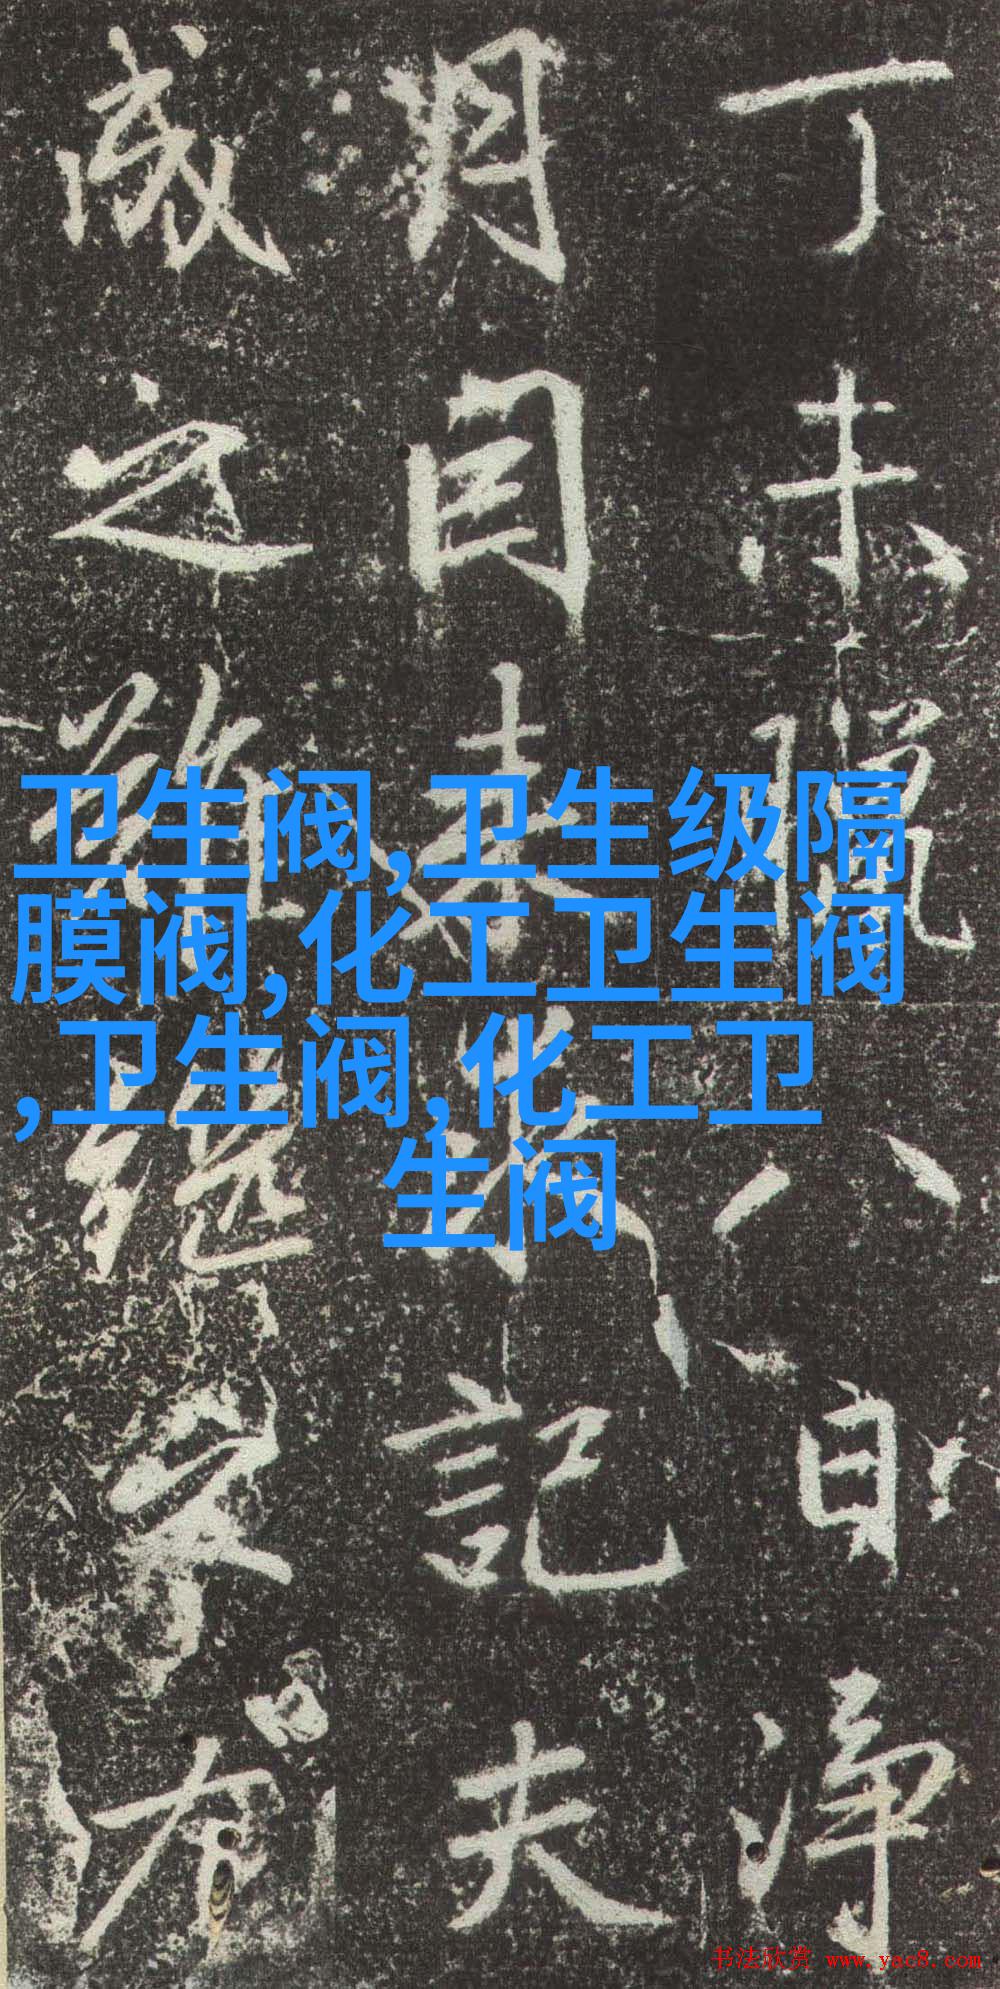 丁未臘八日淨
月自来求記夫
成之難继守
卫生阀,卫生级隔
膜阀,化工卫生阀
,卫生阀,化工卫
生阀
书法欣赏 www.yac8.com